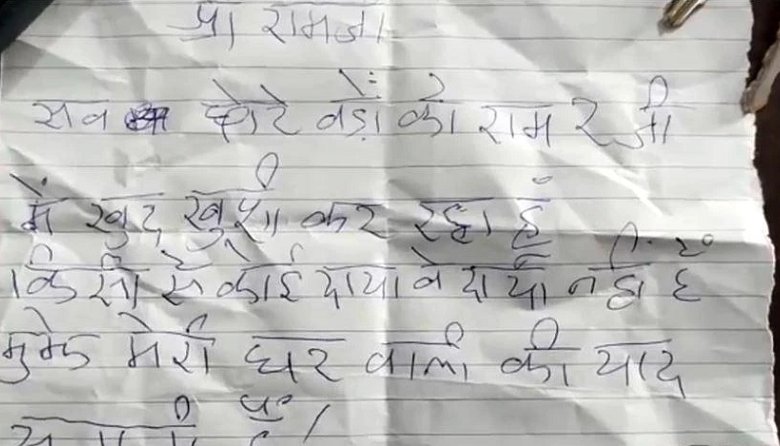 श्री रामजी
सब छोटे बड़ों को राम रजी
में खुद खुशी कर रहा हूं
किसी से कोई दाया वे दायी नहीं है
मुझे मेरी घर वाली की याद